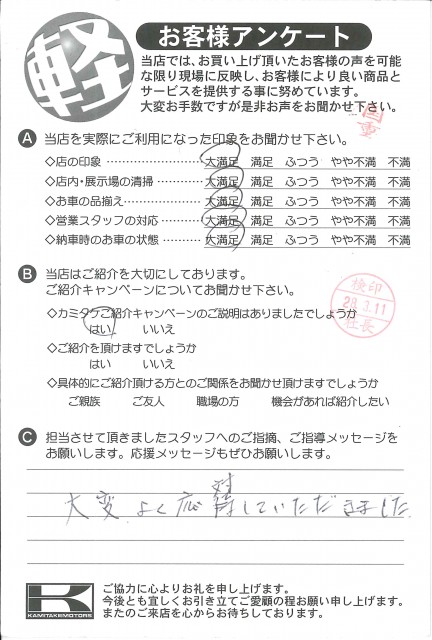 軽
お客様アンケート
当店では、お買い上げ頂いたお客様の声を可能
な限り現場に反映し、お客様により良い商品と
サービスを提供する事に努めています。
大変お手数ですが是非お声をお聞かせ下さい。
A 当店を実際にご利用になった印象をお聞かせ下さい。
◇店の印象 ……………… 大満足 満足 ふつう やや不満 不満
◇店内・展示場の清掃 ……… 大満足 満足 ふつう やや不満 不満
◇お車の品揃え …………… 大満足 満足 ふつう やや不満 不満
◇営業スタッフの対応 ……… 大満足 満足 ふつう やや不満 不満
◇納車時のお車の状態 ……… 大満足 満足 ふつう やや不満 不満
B 当店はご紹介を大切にしております。
ご紹介キャンペーンについてお聞かせ下さい。
検印
28.3.11
社長
◇カミタケご紹介キャンペーンのご説明はありましたでしょうか
はい いいえ
◇ご紹介を頂けますでしょうか
はい いいえ
◇具体的にご紹介頂ける方とのご関係をお聞かせ頂けますでしょうか
ご親族 ご友人 職場の方 機会があれば紹介したい
C 担当させて頂きましたスタッフへのご指摘、ご指導メッセージを
お願いします。応援メッセージもぜひお願いします。
大変 よく応対していただきました
K
KAMITAKEMOTORS
ご協力に心よりお礼を申し上げます。
今後とも宜しくお引き立てご愛顧の程お願い申し上げます。
またのご来店を心からお待ちしております。